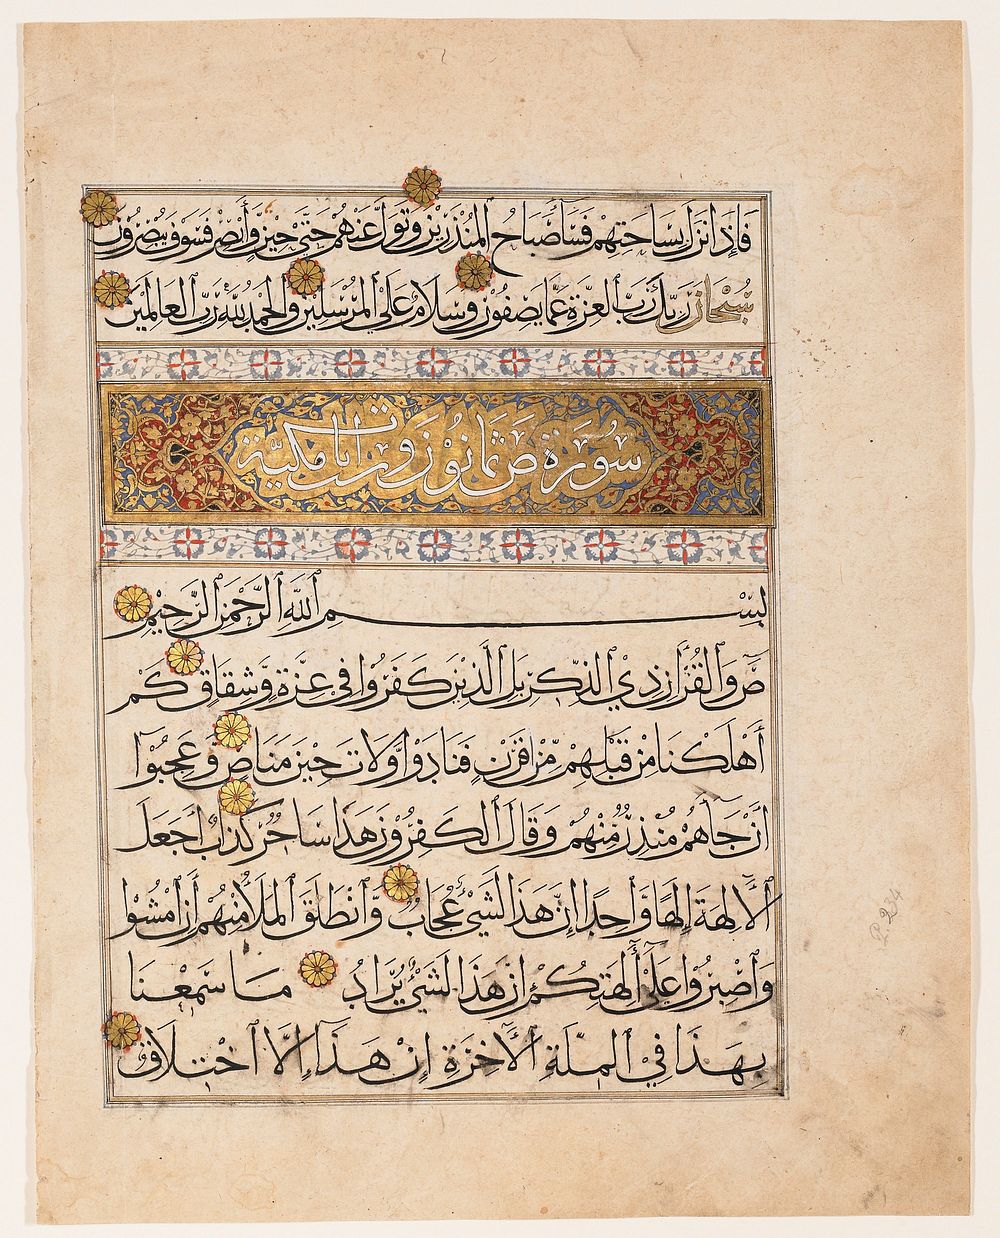 فَإِذَا نَزَلَ بِسَاحَتِهِمْ فَسَآءَ صَبَاحُ الْمُنْذَرِيْنَ وَتَوَلَّ عَنْهُمْ حَتّٰى حِيْنٍ وَّأَبْصِرْ فَسَوْفَ يُبْصِرُوْنَ
سُبْحَانَ رَبِّكَ رَبِّ الْعِزَّةِ عَمَّا يَصِفُوْنَ وَسَلَامٌ عَلَى الْمُرْسَلِيْنَ وَالْحَمْدُ لِلّٰهِ رَبِّ الْعَالَمِيْنَ
سُوْرَة صۤ ثمانُوْنَ ايات مكيّة
بِسْمِ اللّٰهِ الرَّحْمٰنِ الرَّحِيْمِ
صۤ وَالْقُرْاٰنِ ذِي الذِّكْرِ بَلِ الَّذِيْنَ كَفَرُوْا فِي عِزَّةٍ وَّشِقَاقٍ كَمْ
أَهْلَكْنَا مِنْ قَبْلِهِمْ مِّنْ قَرْنٍ فَنَادَوْا وَّلَاتَ حِيْنَ مَنَاصٍ وَعَجِبُوْا
أَنْ جَآءَهُمْ مُنْذِرٌ مِّنْهُمْ وَقَالَ الْكٰفِرُوْنَ هٰذَا سَاحِرٌ كَذَّابٌ أَجَعَلَ
الْاٰلِهَةَ إِلٰهًا وَّاحِدًا إِنَّ هٰذَا لَشَيْءٌ عُجَابٌ وَانْطَلَقَ الْمَلَأُ مِنْهُمْ أَنِ امْشُوْا
وَاصْبِرُوْا عَلٰى اٰلِهَتِكُمْ إِنَّ هٰذَا لَشَيْءٌ يُّرَادُ مَا سَمِعْنَا
بِهٰذَا فِي الْمِلَّةِ الْاٰخِرَةِ إِنْ هٰذَا إِلَّا اخْتِلَاقٌ
P. 234